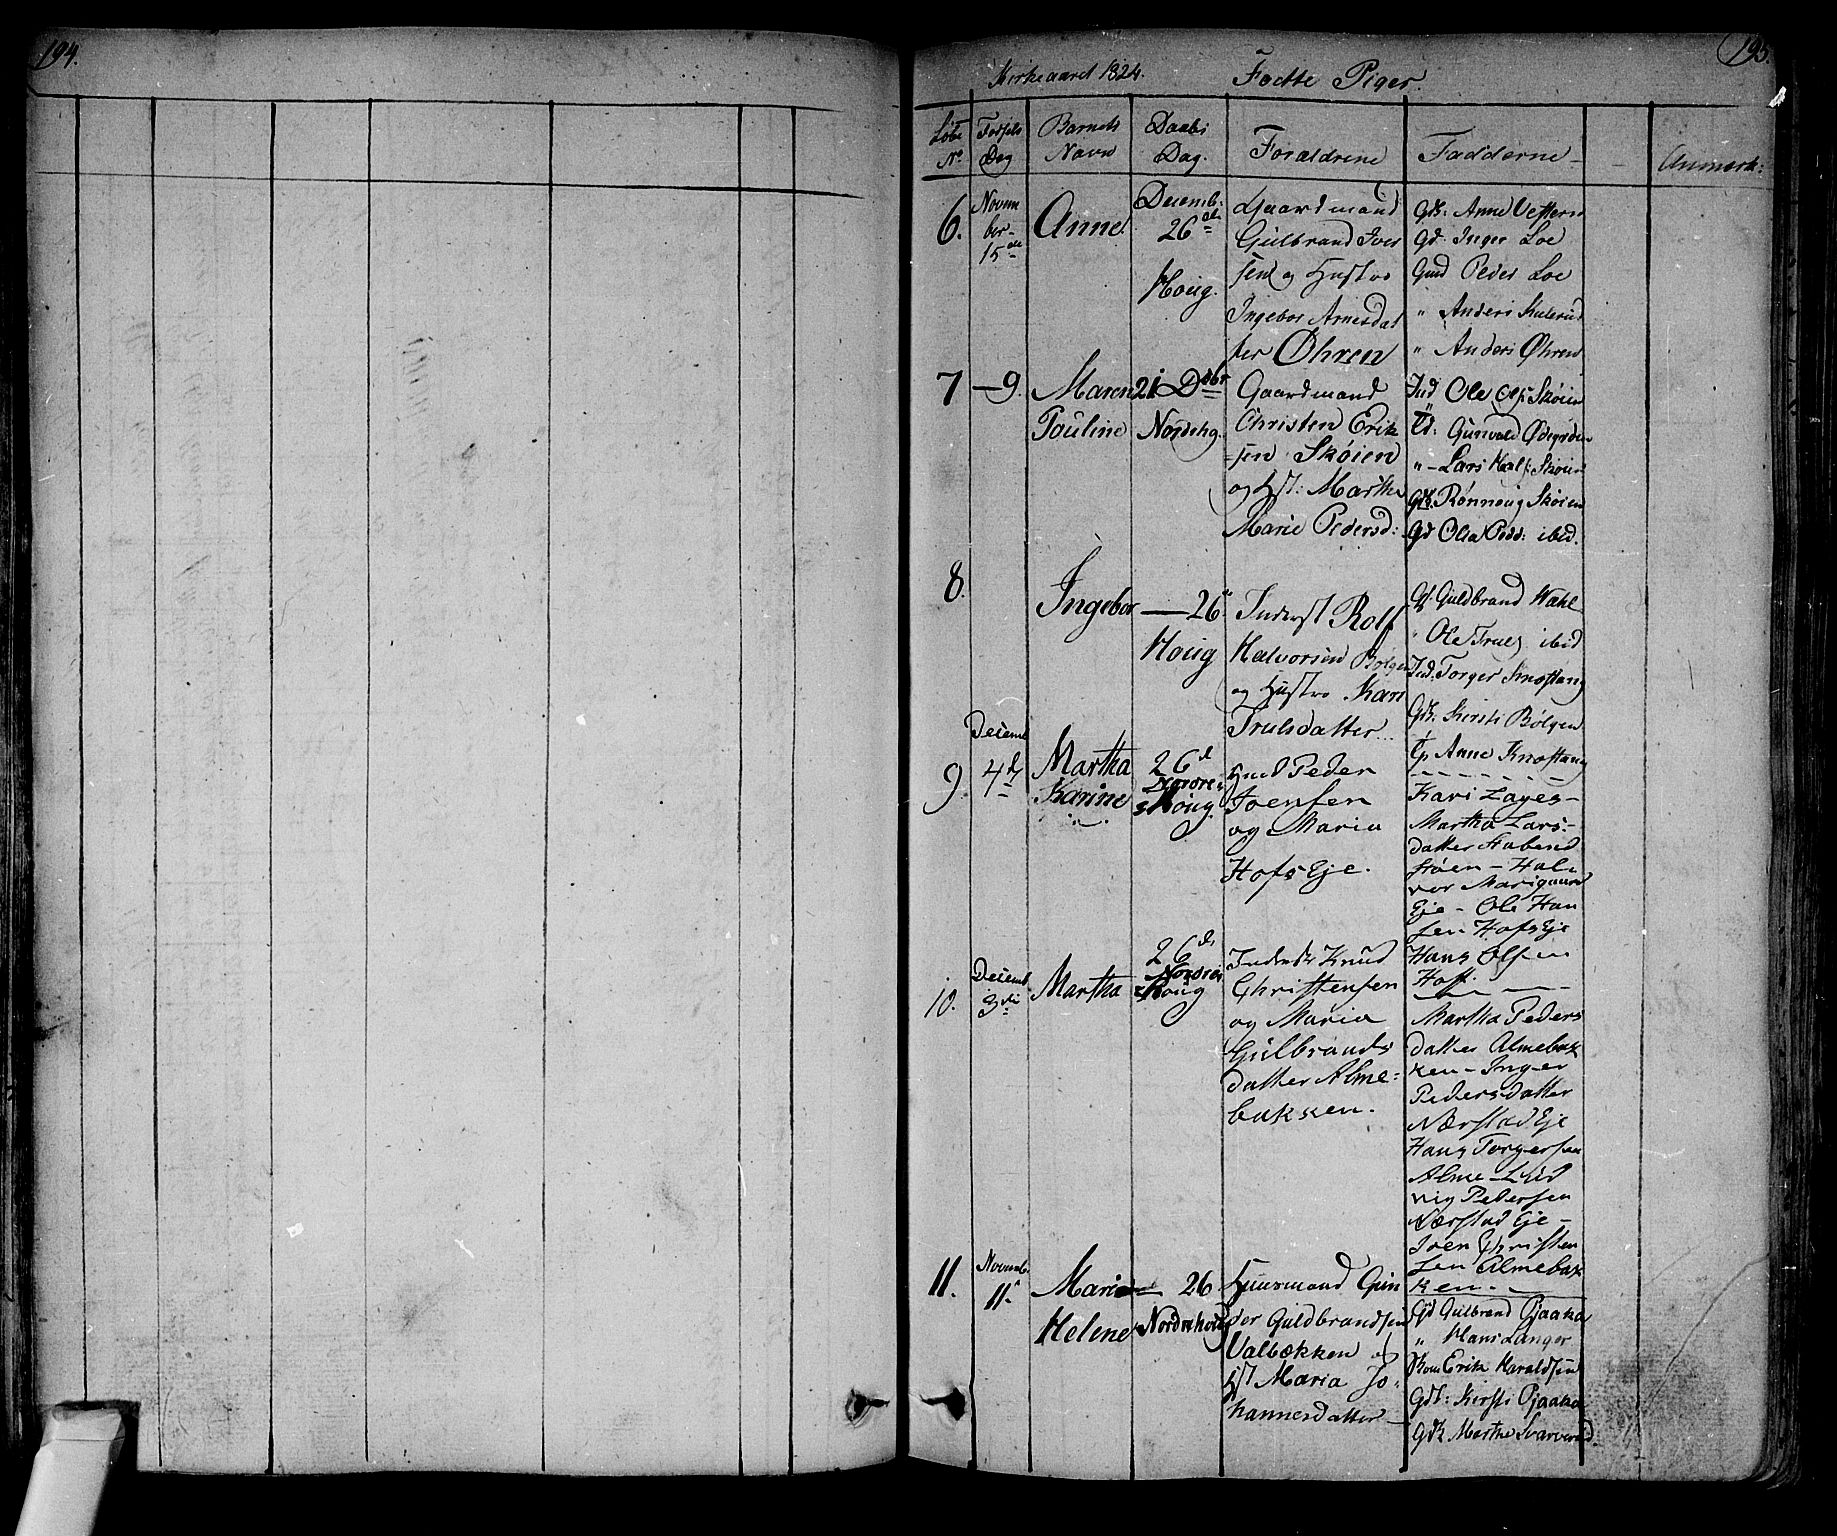 194.
195.
Kirkeaaret 1824. Födte Piger.
Löbe No. Födsels Dag Barnets Navn Daabs Dag. Forældrene Fadderne Anmærk:
6. Novem ber 15de Anne Decemb: 26de Houg.
Gaardmand
Gulbrand Iver
sen og Hustro
Ingebor Arnesdat
ter Øhren
Gdk: Anne Vestern
Gd. Inger Loe
Gmd Peder Loe
" Anders Kulerud
" Anders Øhren
7 — 9. Maren Pouline 21 Dcbr Nordrhg.
Gaardmand
Christen Erik
sen Skøien
og Hst: Martha
Marie Pedersd:
Ind Ole Ols: Skøien
Gunvald
" — Lars Hals: Skøien
Gdk. Rönnoug Skøien
Gd Olea Pedd: ibid.
8. Ingebor — 26 Houg
Inderst Rolf
Halvorsen Bølgen
og Hustro Kari
Trulsdatter
Guldbrand Wahl
" Ole Truls. ibid
Ind. Torger Knostang
Gdk. Kirsti Bølgen
Anne Knostang
9. Decemb 4d Martha Karine 26d Nordre Houg.
Huusmd Peder
Joensen
og Maria
Hofs Eje.
Kari Lages-
Martha Lars-
datter
støen - Hal-
vor Morigaard
Eje - Ole Han
sen Hofs Eje
Hans Olsen
Hoff.
10. Decemb 3die Martha 26de Nordre Houg
Inderst Knud
Christensen
og Maria
Gulbrands
datter Alme-
bakken.
Martha Peders
datter Almebak
ken - Inger
Pedersdatter
Nærstad Eje
Hans Torgersen
Alme - Lud
vig Pedersen
Nærstad Eje -
Joen Christen
sen Almebak
ken.
11. Novemb. 11 Maria Helene — 26 Nordrehoug
Huusmand Gun
der Guldbrandsen
Valbækken og
Hst Maria Jo-
hannesdatter
Gd Gulbrand Gjaaka
" Hans Langer
Erik Haraldsen
Gdk: Kirsti Gjaaka
Gdk Marthe Svarverud.